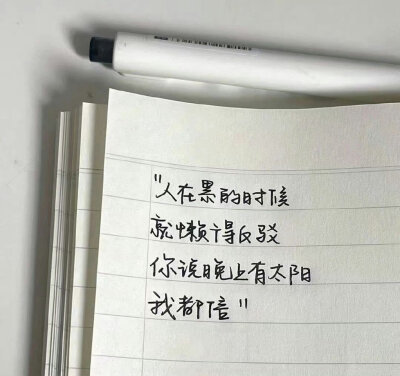 "人在累的时候
就懒得反驳
你说晚上有太阳
我都信"